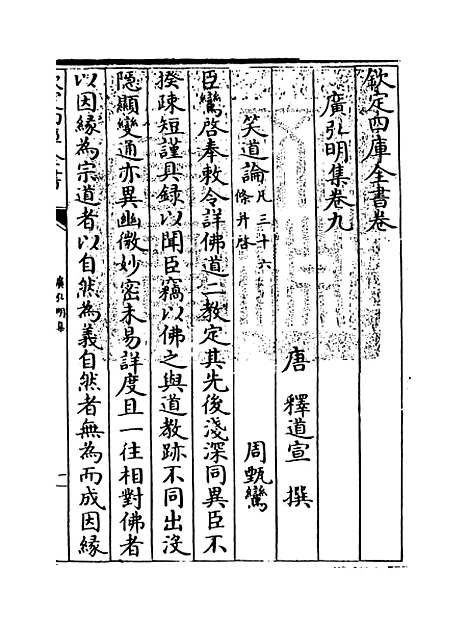 欽定四庫全書卷
廣弘明集卷九
唐 釋道宣 撰
笑道論 凡三十六條并啓 周甄鸞
臣鸞啓奉敕令詳佛道二教定其先後淺深同異臣不
揆疎短謹具録以聞臣竊以佛之與道教跡不同出没
隱顯變通亦異幽微妙密未易詳度且一往相對佛者
以因緣為宗道者以自然為義自然者無為而成因緣
廣弘明集